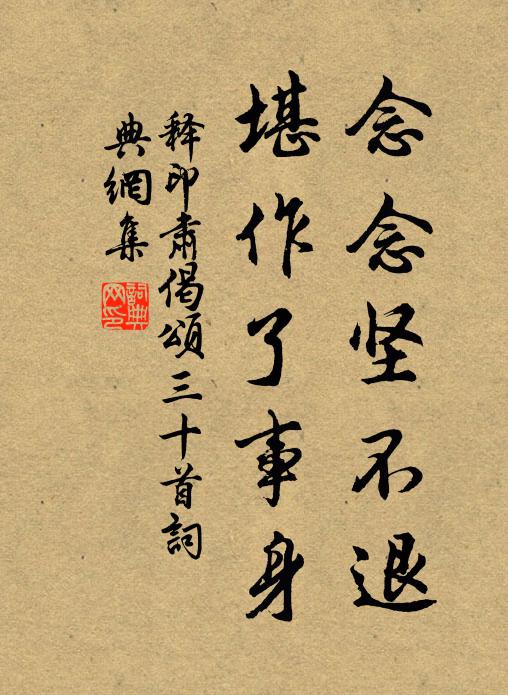 念念坚不退
堪作了事身
释印肃偈颂三十首詞
典網集
詞典
网印